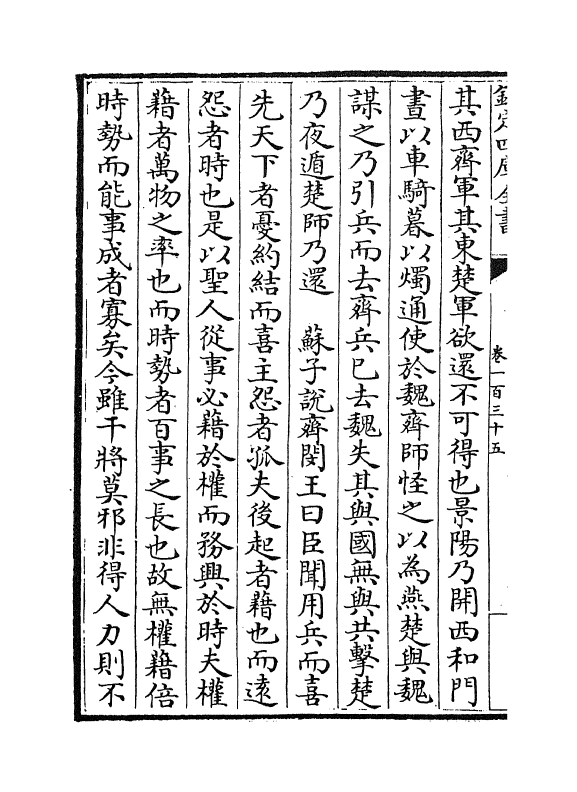 欽定四庫全書
卷一百三十五
其西齊軍其東楚軍欲還不可得也景陽乃開西和門
晝以車騎暮以燭通使於魏齊師怪之以為燕楚與魏
謀之乃引兵而去齊兵已去魏失其與國無與共擊楚
乃夜遁楚師乃還　蘇子說齊閔王曰臣聞用兵而喜
先天下者憂約結而喜主怨者孤夫後起者藉也而逺
怨者時也是以聖人從事必藉於權而務興於時夫權
藉者萬物之率也而時勢者百事之長也故無權藉倍
時勢而能事成者寡矣今雖干將莫邪非得人力則不